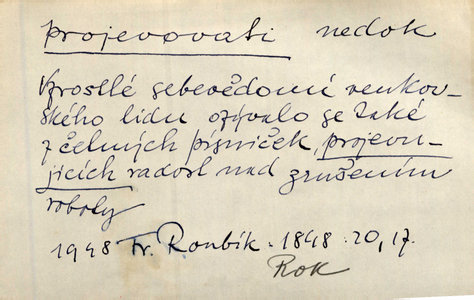 projevovati nedok
Vzrostlé sebevědomí venkov-
ského lidu ozývalo se také
z četných písniček, projevu-
jících radost nad zrušením
roboty
1948 Fr. Roubík. 1848. 20, 17.
Rok